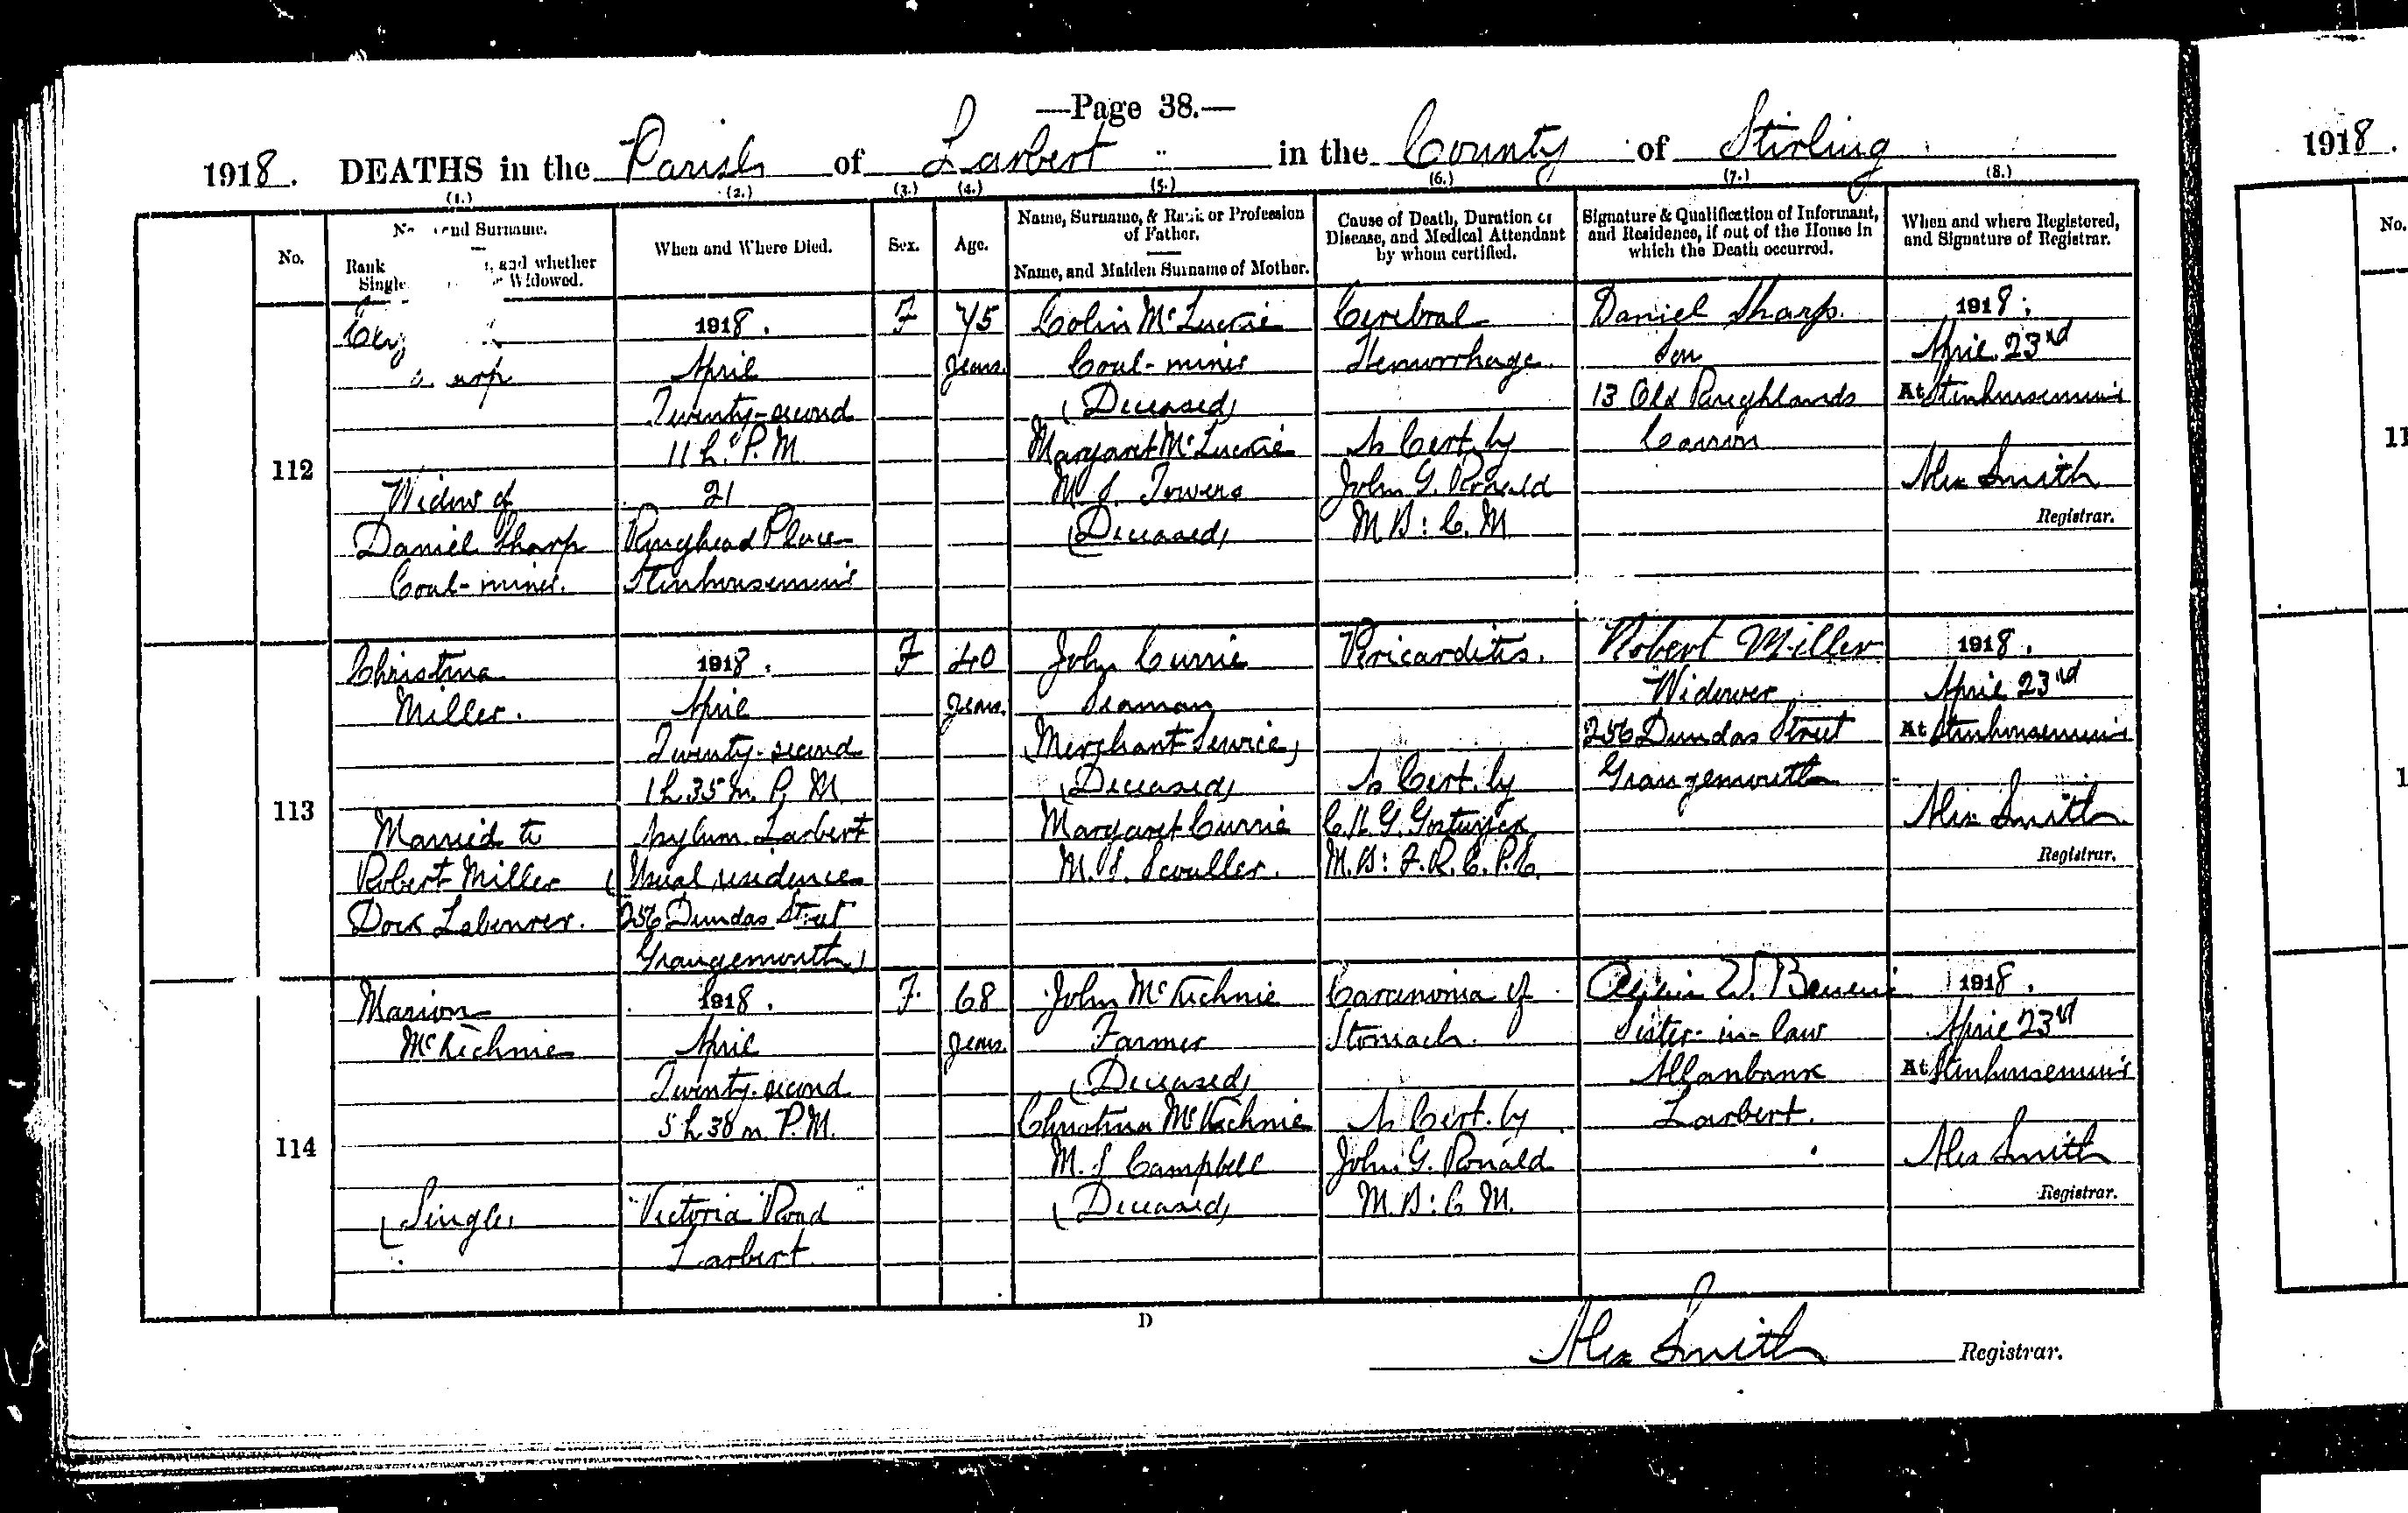 —Page 38.—
1918. DEATHS in the Parish of Larbert in the County of Stirling
(1.) (2.) (3.) (4.) (5.) (6.) (7.) (8.)
No.
and Surname.
Rank and whether
Single Widowed.
When and Where Died.
Sex.
Age.
Name, Surname, & Rank or Profession
of Father.
Name, and Maiden Surname of Mother.
Cause of Death, Duration of
Disease, and Medical Attendant
by whom certified.
Signature & Qualification of Informant,
and Residence, if out of the House in
which the Death occurred.
When and where Registered,
and Signature of Registrar.
112
Widow of
Daniel Sharp
Coal-miner.
1918.
April
Twenty-second
11 h. P. M.
21
Place
Stenhousemuir
F
75
years.
Colin McLuckie
Coal-miner
(Deceased)
Margaret McLuckie
M. S. Towers
(Deceased)
Cerebral
Hemorrhage.
As Cert. by
John G. Ronald
M. B: C. M
Daniel Sharp.
Son
13 Old
Carron
1918.
April 23rd
At Stenhousemuir
Alex Smith
Registrar.
113
Christina
Miller.
Married to
Robert Miller
Dock Labourer.
1918.
April
Twenty-second
1 h. 35 m. P. M.
Asylum Larbert
(Usual residence
256 Dundas Street
Grangemouth)
F
40
years.
John Currie
Seaman
(Merchant Service)
(Deceased)
Margaret Currie
M. S. Scouller.
Pericarditis.
As Cert. by
M. B: F. R. C. P. E.
Robert Miller
Widower
256 Dundas Street
Grangemouth
1918.
April 23rd
At Stenhousemuir
Alex Smith
Registrar.
114
Marion
McKechnie
(Single)
1918.
April
Twenty-second
5 h. 30 m. P. M.
"Victoria Road"
Larbert
F.
68
years.
John McKechnie
Farmer
(Deceased)
Christina McKechnie
M. S. Campbell
(Deceased)
Carcinoma of
Stomach.
As Cert. by
John G. Ronald
M. B: C. M.
Sister-in-law
Allanbank
Larbert.
1918.
April 23rd
At Stenhousemuir
Alex Smith
Registrar.
D
Alex Smith Registrar.
1918.
No.